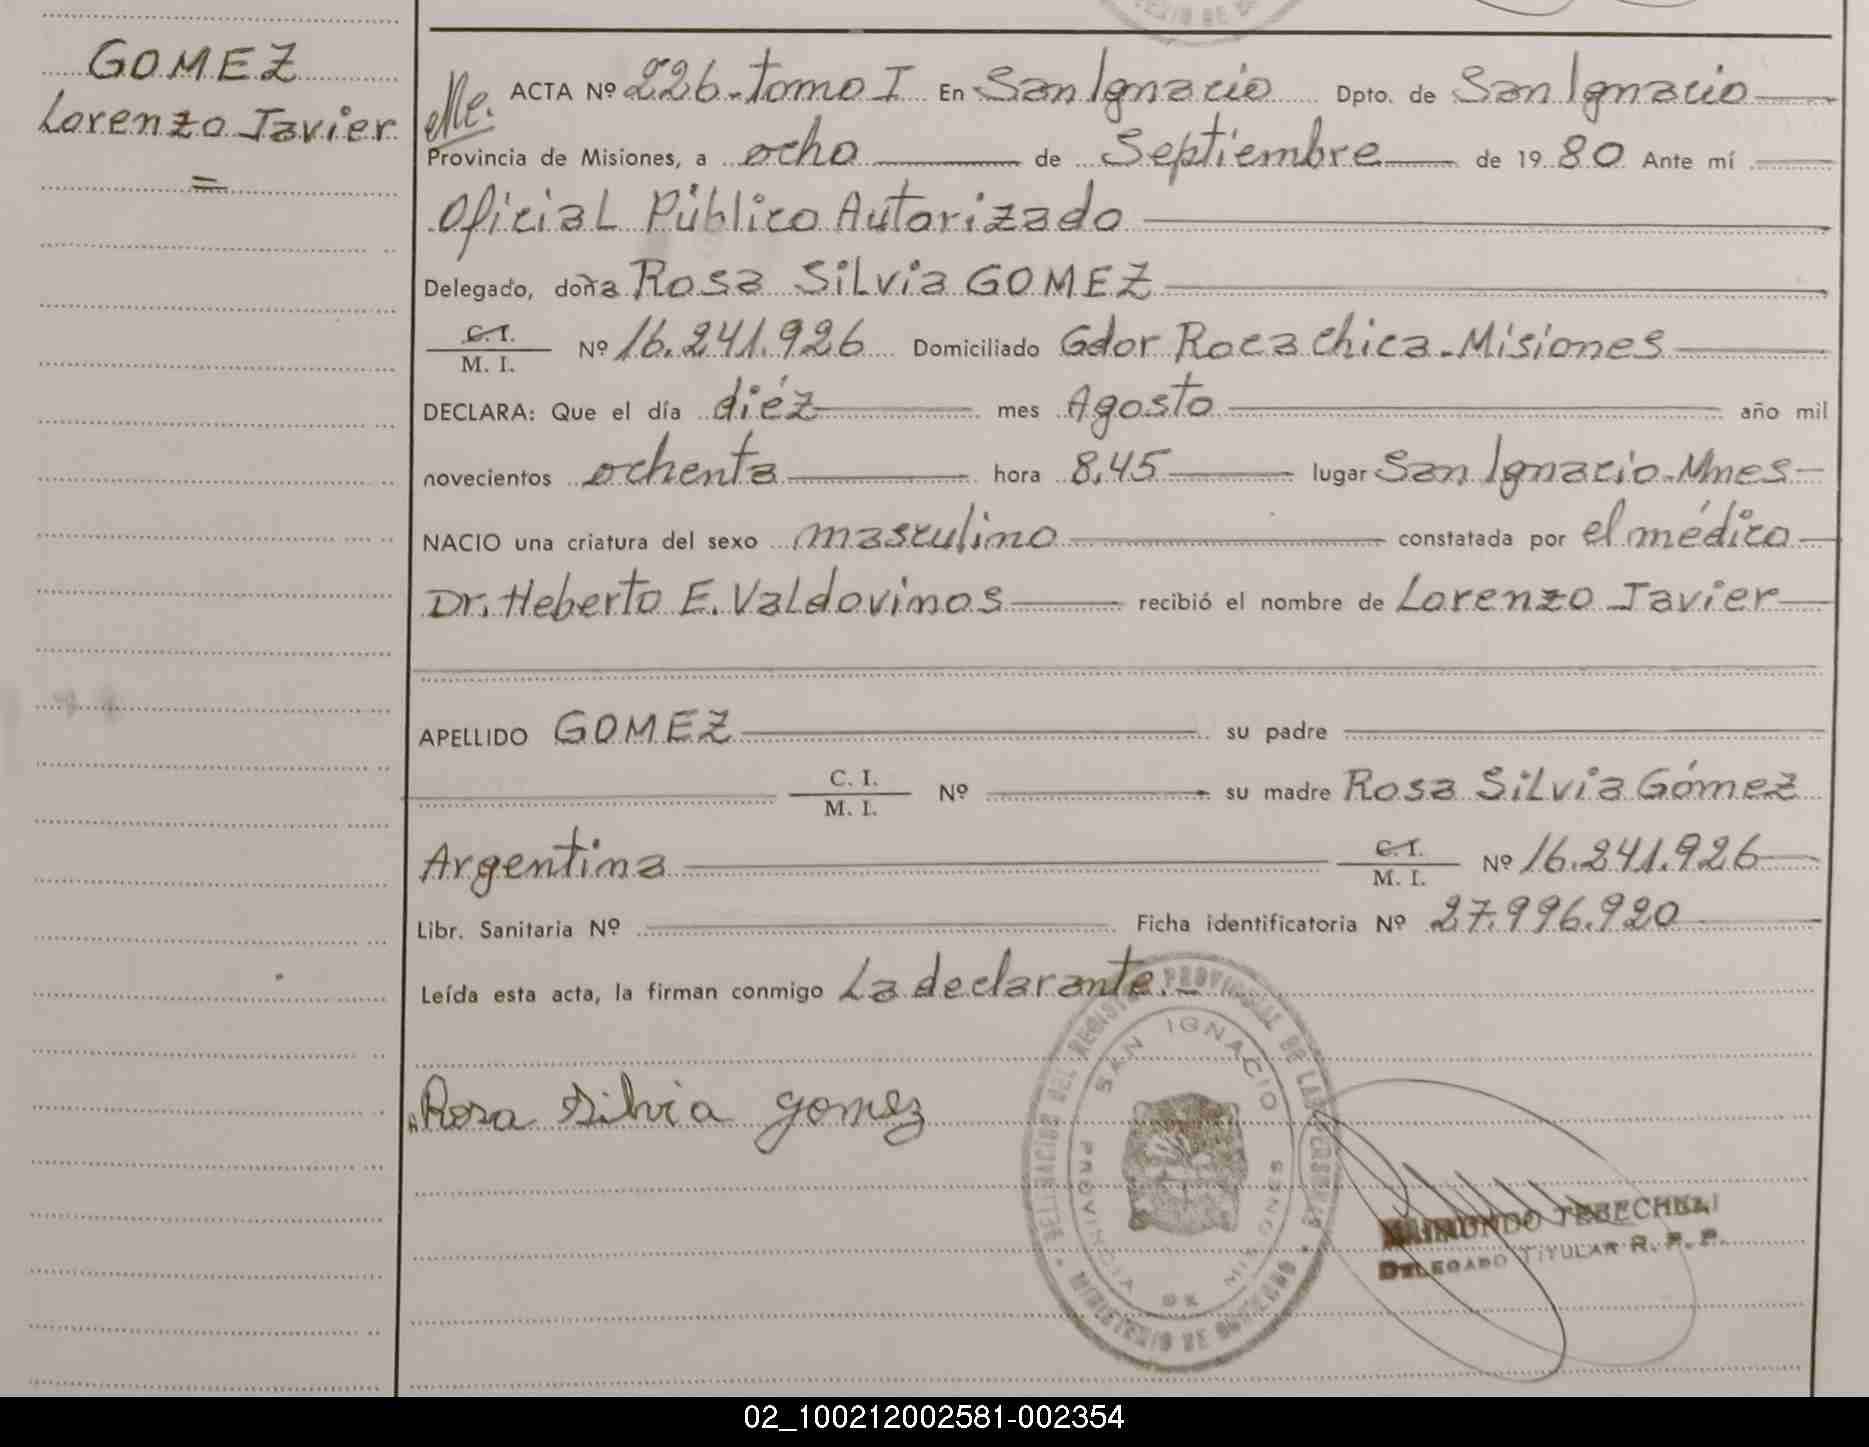 GOMEZ
Lorenzo Javier
=
ACTA Nº 226.tomo I En San Ignacio Dpto. de San Ignacio
Provincia de Misiones, a ocho de Septiembre de 1980 Ante mí
Oficial Público Autorizado
Delegado, doña Rosa Silvia GOMEZ
C. I.
M. I.
Nº 16.241.926 Domiciliado Gdor Roca chica-Misiones
DECLARA: Que el día diéz mes Agosto año mil
novecientos ochenta hora 8,45 lugar San Ignacio-Mnes
NACIO una criatura del sexo masculino constatada por el médico
Dr. Heberto E. Valdovinos recibió el nombre de Lorenzo Javier
APELLIDO GOMEZ su padre
C. I.
M. I.
Nº su madre Rosa Silvia Gómez
Argentina
C. I.
M. I.
Nº 16.241.926
Libr. Sanitaria Nº Ficha identificatoria Nº 27.996.920
Leída esta acta, la firman conmigo La declarante.-
Rosa Silvia gomez
DEL REGISTRO PROVINCIAL DE LAS PERSONAS
MINISTERIO DE GOBIERNO
SAN IGNACIO
PROVINCIA DE MISIONES
RAIMUNDO
DELEGADO TITULAR R. P. P.
02_100212002581-002354